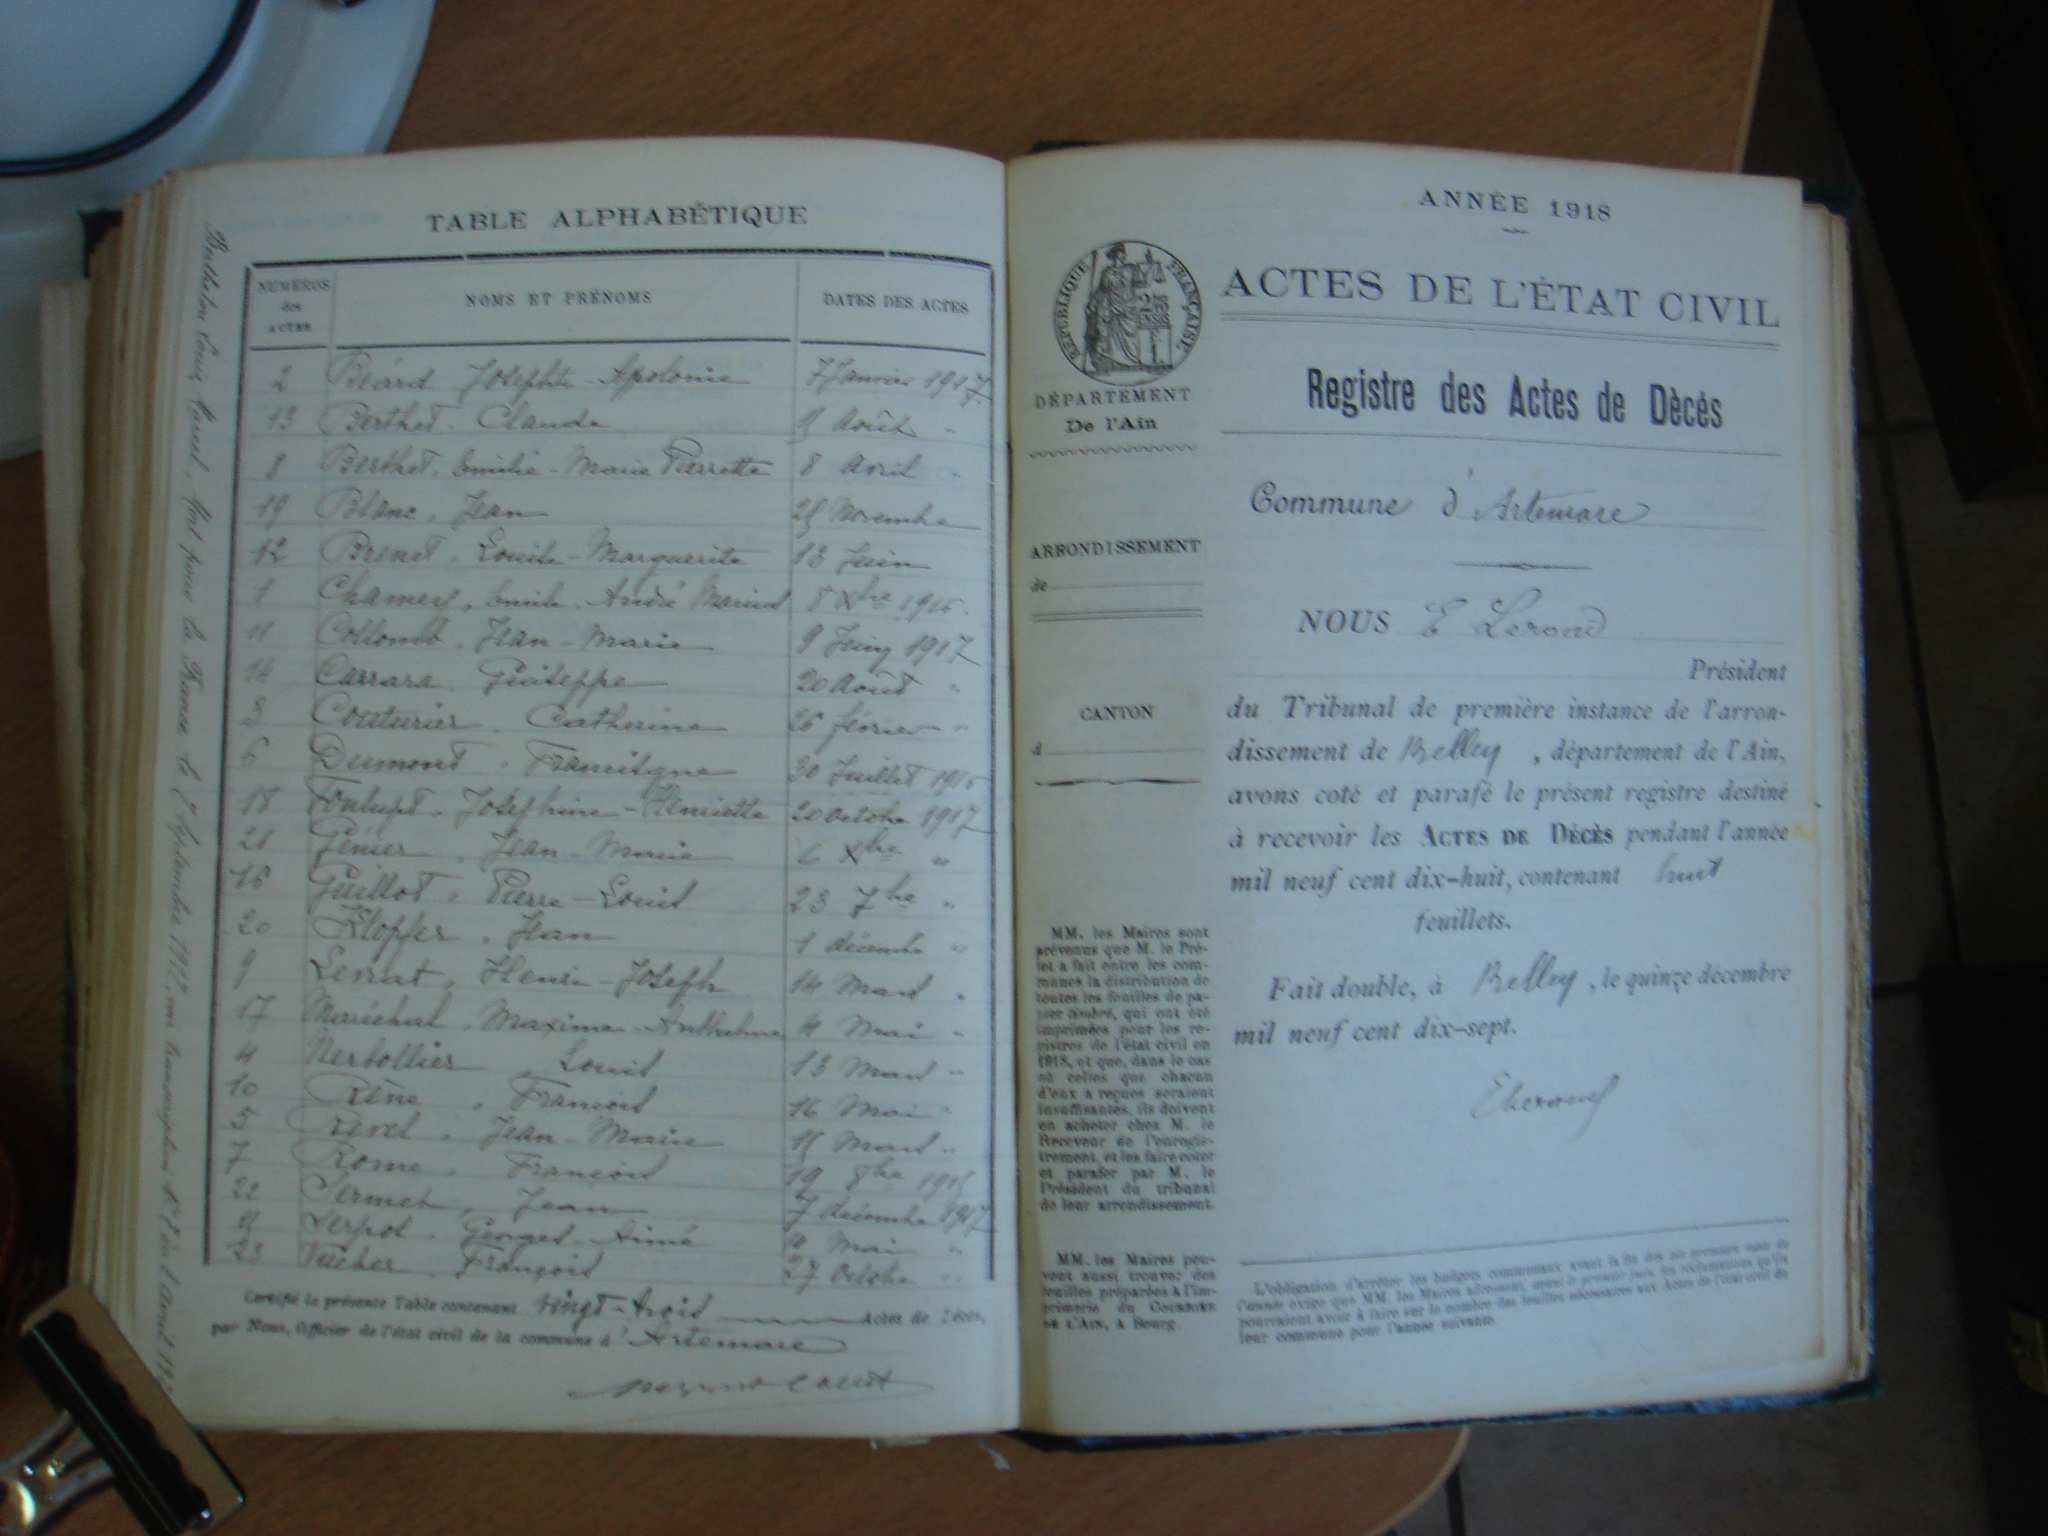 TABLE ALPHABÉTIQUE
NUMÉROS des ACTES NOMS ET PRÉNOMS DATES DES ACTES
2 Béard Josephte-Apolonie 7 Janvier 1917
13 Berthet Claude Août "
8 Berthet, Emilie-Marie Pierrette 8 Avril "
19 Blanc, Jean 25 Novembre
12 Brenet, Louise-Marguerite 13 Juin
1 Chamey, Emile-André Marius 8 Xbre
11 Collomb, Jean-Marie 9 Juin 1917
14 Carrara, Guiseppe 20 Août "
3 Couturier Catherine 26 février "
6 Dumont, Françisque 30 Juillet
18 Foulupt, Joséphine-Henriette 20 octobre 1917
21 Génier, Jean-Marie 6 Xbre "
16 Guillot, Pierre-Louis 23 7bre "
20 Klopfer, Jean 1 décembre "
9 Henri-Joseph 14 Mars "
17 Maréchal, Maxime-Anthelme 4 Mai "
4 Nerbollier, Louis 13 Mars "
10 Rène, François 16 Mai "
5 Revel, Jean-Marie Mars "
7 Rome, François 19 8bre
22 Sermet, Jean 7 décembre 1917
Georges-Aimé Mai "
23 Vucher, François 27 Octobre "
Certifié la présente Table contenant vingt-trois Actes de Décès,
par Nous, Officier de l'état civil de la commune d'Artemare
Berthelon Louis Marcel, Mort pour la France le Septembre
ANNÉE 1918
RÉPUBLIQUE FRANÇAISE
DÉPARTEMENT
De l'Ain
ARRONDISSEMENT
de
CANTON
d
MM. les Maires sont
prévenus que M. le Pré-
fet a fait entre les com-
munes la distribution de
toutes les feuilles de pa-
pier timbré, qui ont été
imprimées pour les re-
gistres de l'état civil en
1918, et que, dans le cas
où celles que chacun
d'eux a reçues seraient
insuffisantes, ils doivent
en acheter chez M. le
Receveur de l'enregis-
trement, et les faire coter
et parafer par M. le
Président du tribunal
de leur arrondissement.
MM. les Maires peu-
vent aussi trouver des
feuilles préparées à l'im-
primerie du COURRIER
DE L'AIN, à Bourg.
ACTES DE L'ÉTAT CIVIL
Registre des Actes de Dècès
Commune d'Artemare
NOUS E Lerond
Président
du Tribunal de première instance de l'arron-
dissement de Belley, département de l'Ain,
avons coté et parafé le présent registre destiné
à recevoir les ACTES DE DÉCÈS pendant l'année
mil neuf cent dix-huit, contenant huit
feuillets.
Fait double, à Belley, le quinze décembre
mil neuf cent dix-sept.
L'obligation d'arrêter les budgets communaux avant la fin des six premiers mois de
l'année exige que MM. les Maires adressent, avant le premier juin, les réclamations qu'ils
pourraient avoir à faire sur le nombre des feuilles nécessaires aux Actes de l'état civil de
leur commune pour l'année suivante.